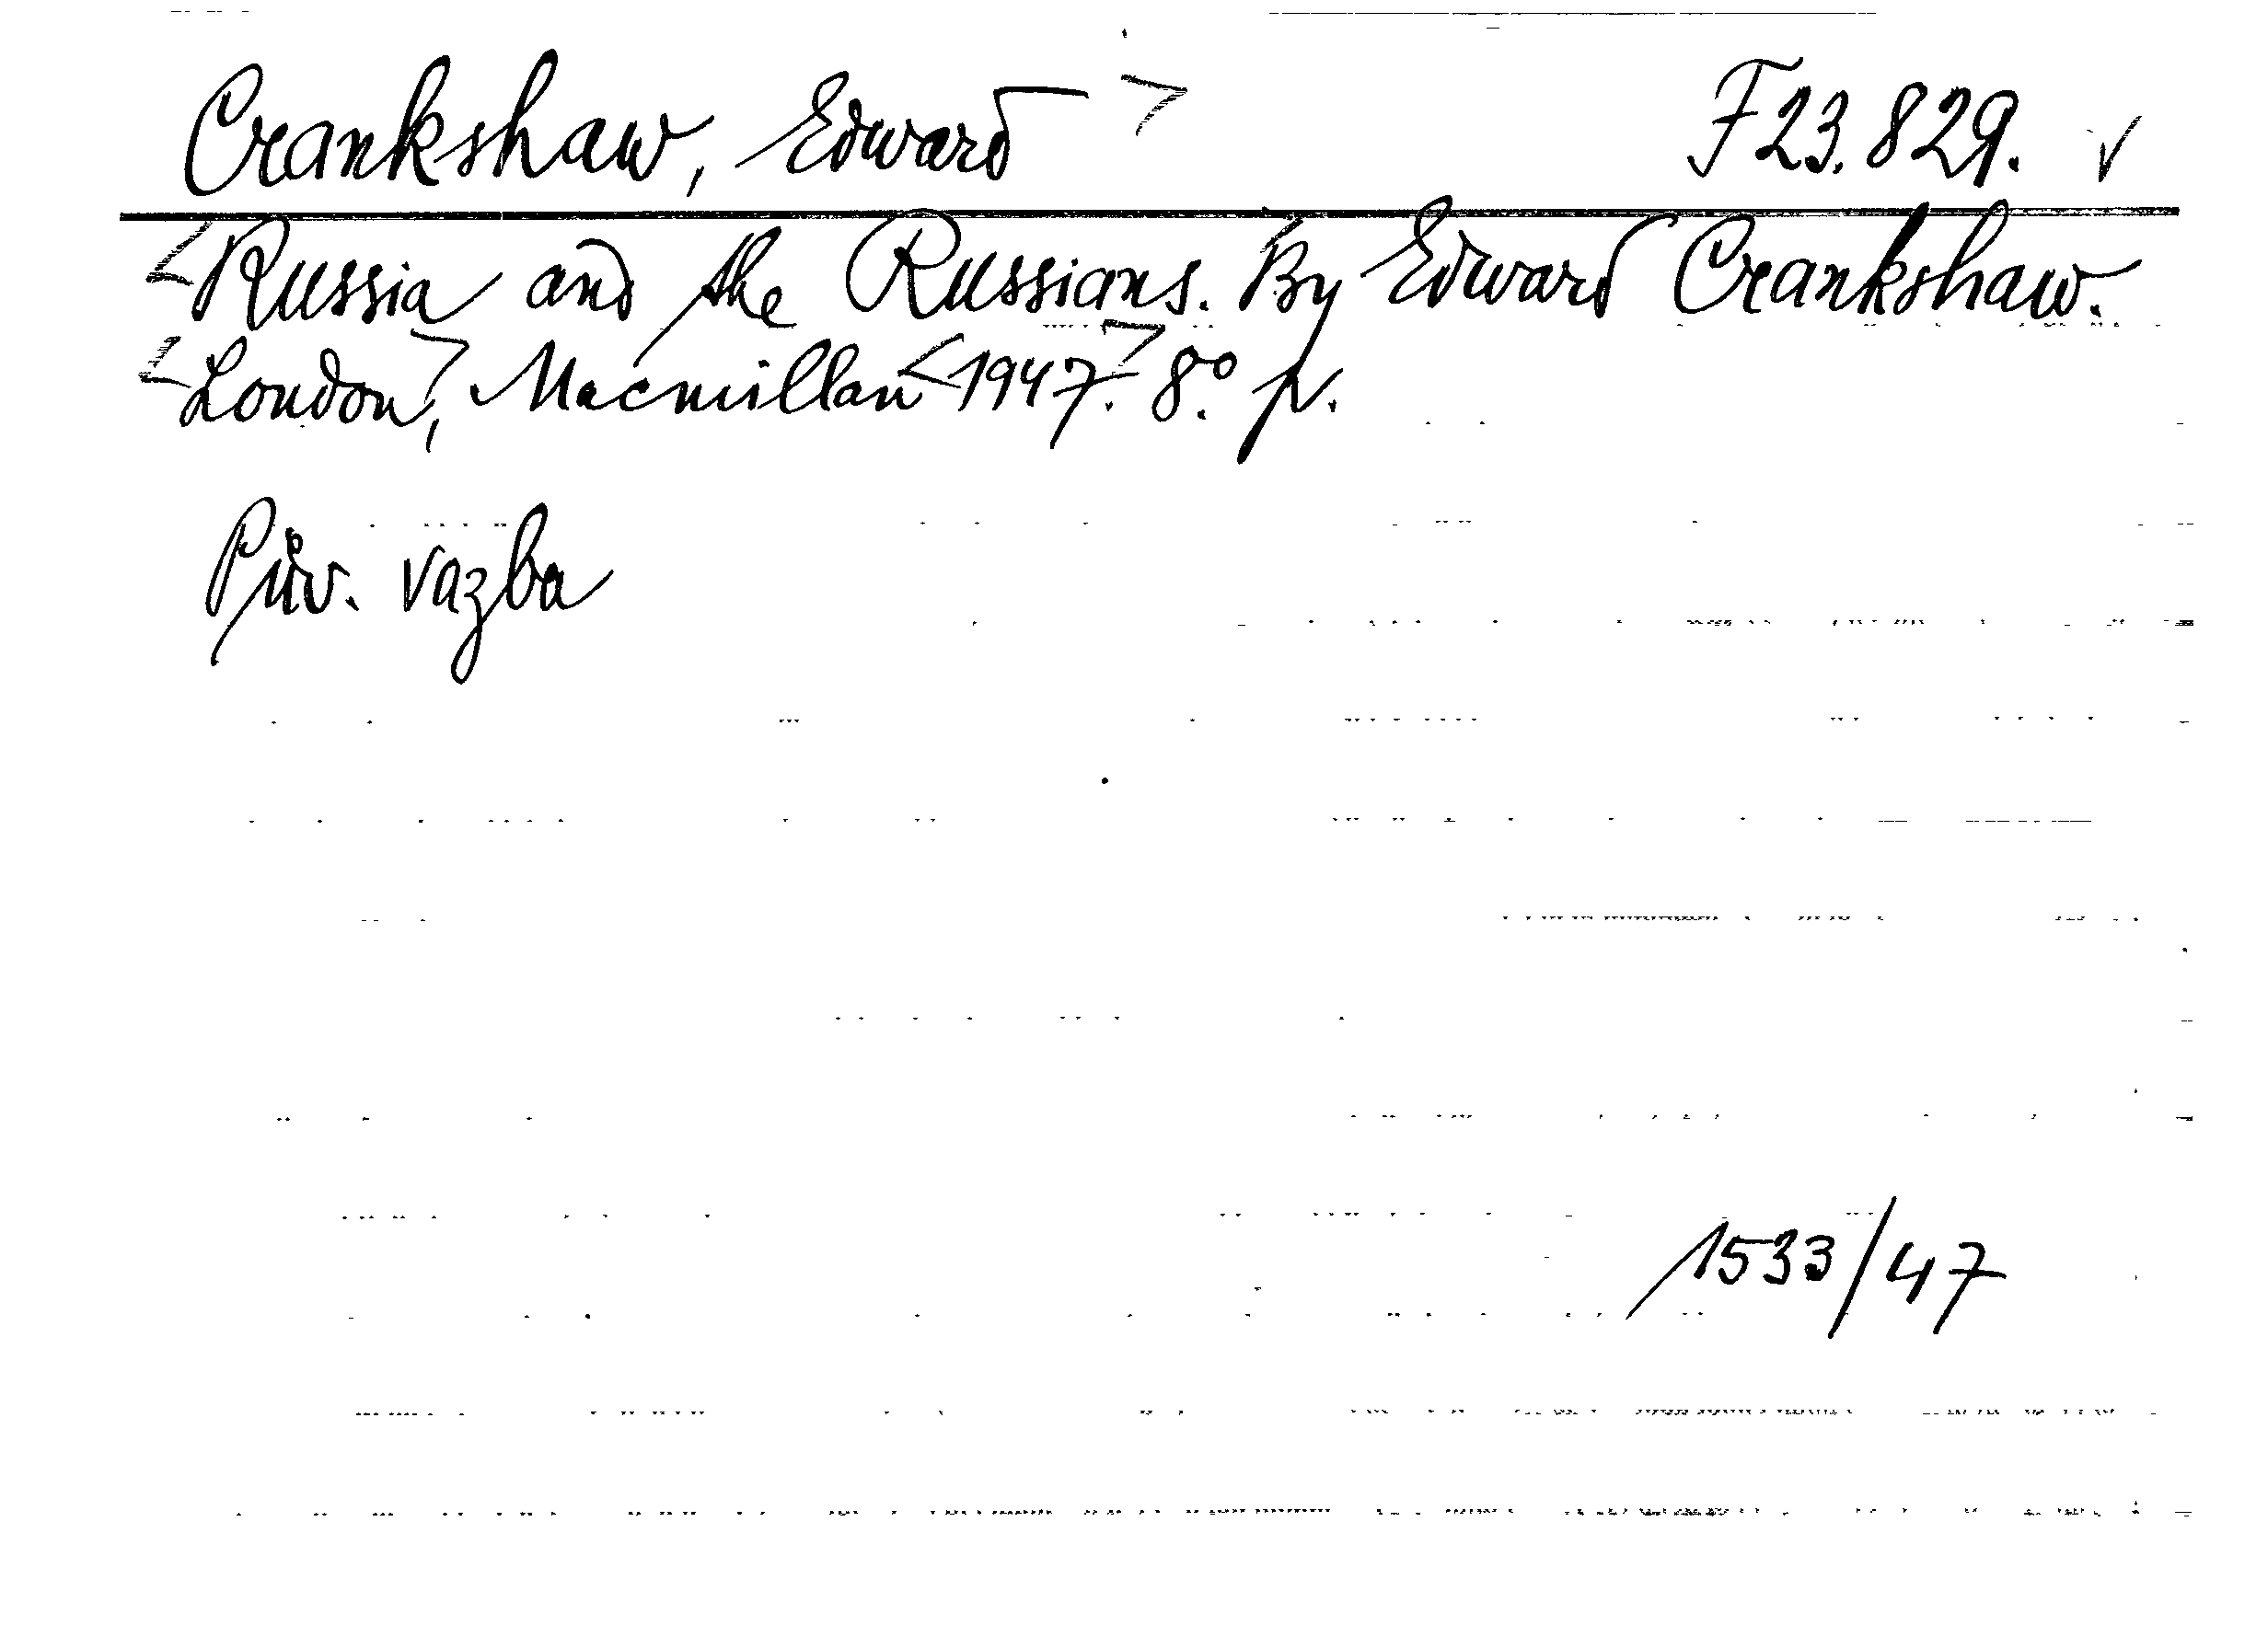 Crankshaw, Edward F 23.829.
Russia and the Russians. By Edward Crankshaw.
London, Macmillan 1947. 8.° p.
Pův. vazba
1533/47